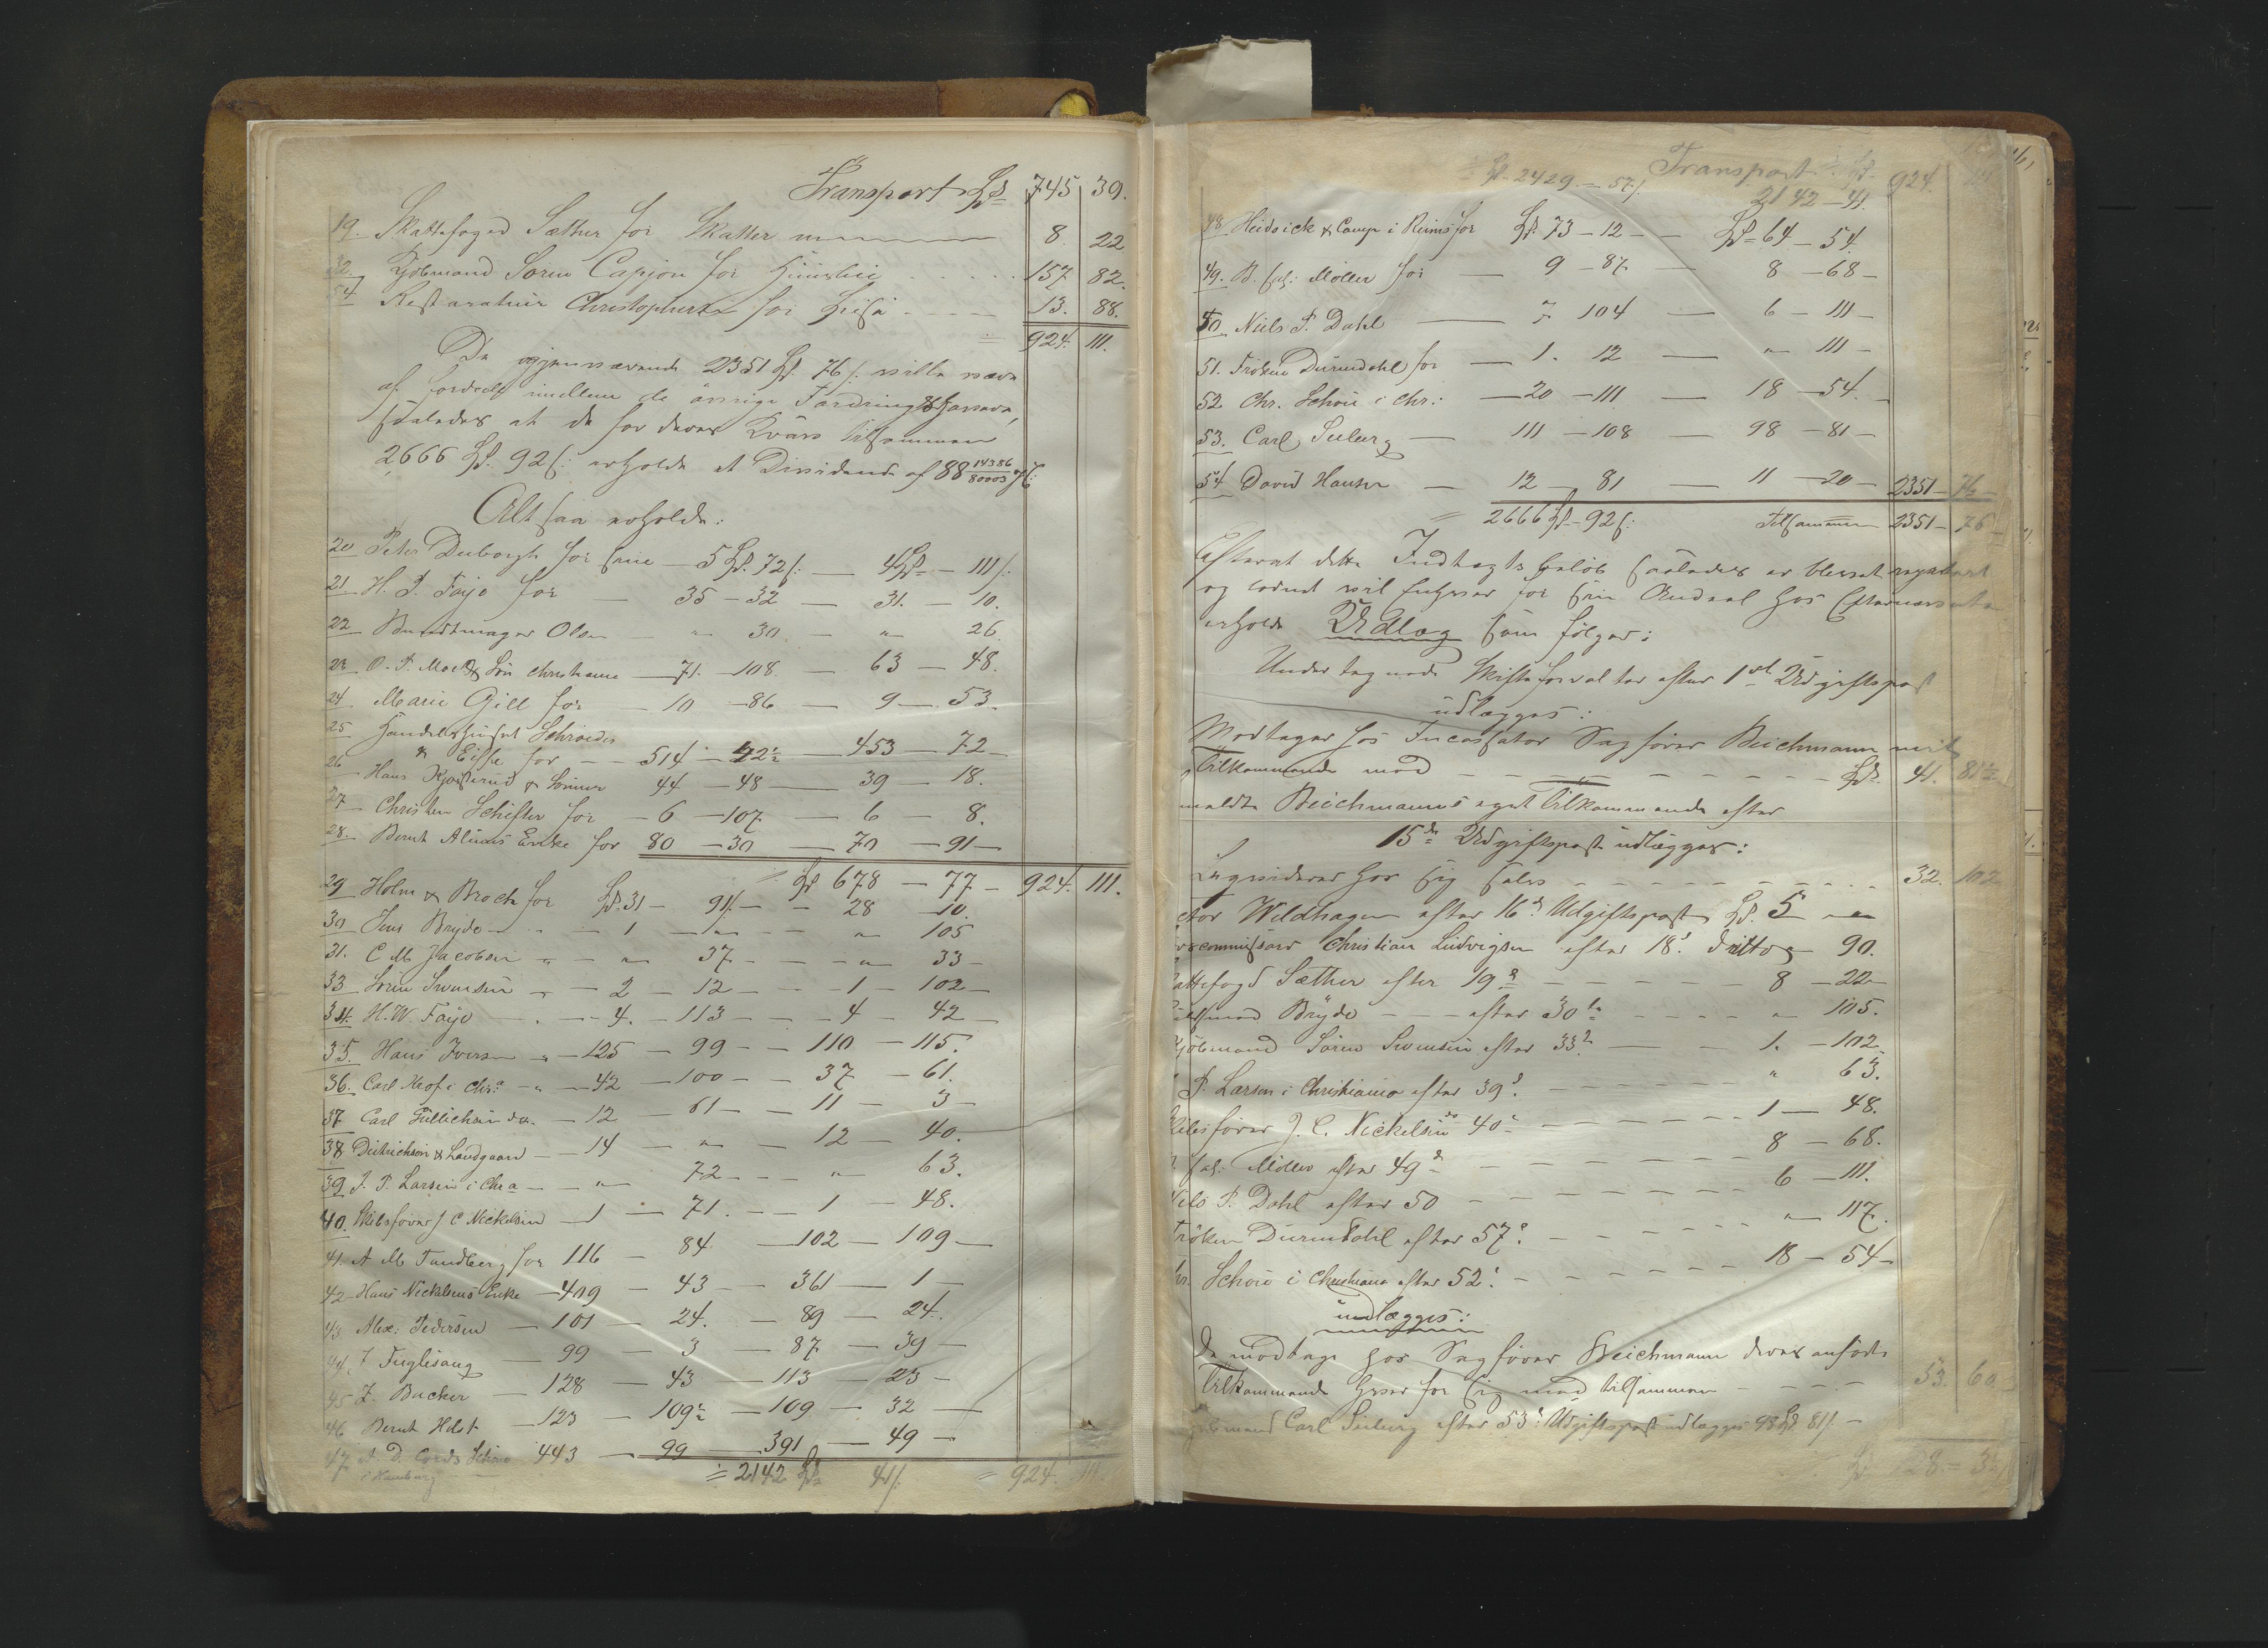 Transport Spd 745 39.
19. Skattefoged Sæther for Skatter 8 22
32 Kjøbmand Sören Capjon for Huusleie 157 82.
54 Restaratuir Christophersen for 13. 88.
= 924. 111.
De igjenværende 2351 Spd. 76 s: ville være
at fordele imellem de övrige Fordringshavere,
saaledes at de for deres Kväro tilsammen
2666 Spd. 92 s: erholde et Dividende af 88 14386/80003 %
Altsaa erholde:
20 Peter Duborgh for sine — 5 Spd. 72 s: — 4 Spd — 111 s:
21 H. P. Faye for — 35 — 32 — 31. — 10.
22 Bundtmager Olsen — " 30 — " 26.
23 O. P. Moe & Sön Christiania — 71. — 108 — 63 — 48.
24 Marie Gill for — 10 — 86 — 9 — 53.
25 Handelshuset Schröeder
& Eisse for — 514 — 42½ — 453 — 72
26 Hans Kjøsterud & Sönner 44 — 48 — 39 — 18.
27 Christen Schifter for — 6 — 107 — 6 — 8.
28 Bernt Aluns Enke for 80 — 30 — 70 — 91 —
Spd 678 — 77 — 924. 111.
29 Holm & Broch for Spd. 31 — 91 s: — 28 10.
30 Jens Bryde — 1 — " — " 105
31. C M Jacobsen " — " 37 — " 33 —
33 Sören Svensen " — 2 — 12 — 1 — 102 —
34. H. W. Faye — 4. — 113 — 4 — 42 —
35. Hans Iversen " — 125 — 99 — 110 — 115.
36. Carl Krof i Chra — " — 42 — 100 — 37 — 61.
37 Carl Güllichsen do. — 12 — 61 — 11 — 3 —
38 Dietrichson & Landgaard — 14 — " — 12 — 40.
39 J. P. Larsen i Chra — " 72 — " 63.
40. Skibsfører J C Nickelsen — 1 — 71. — 1 — 48.
41. A M Tandberg for 116 — 84 — 102 — 109 —
42 Hans Nickelsens Enke — 409 — 43 — 361 — 1 —
43 Alex: Pedersen — 101 — 24. — 89 — 24.
44. J Fuglesang — 99 — 3 — 87 — 39 —
45 J. Bucher — 128 — 43 — 113 — 23 —
46 Bernt Holst — 123 — 109½ — 109 — 32 —
47 A. D. Cords Schöne 443 — 99 — 391 — 49 —
i Hamburg
= 2142 Spd 41 s: = 924. 111.
Transport Spd. 924. 111
= Spd. 2429 — 57 s. 2142 — 41.
48 Heidsick & Comp i Reims for Spd. 73 — 12 — Spd 64 — 54.
49. B. sal: Möller for — 9 — 87 — 8 — 68 —
50 Niels P. Dahl — 7 104 — 6 — 111 —
51. Fröken Durendahl for — 1. 12 — " 111 —
52 Chr. Schou i Chr: — 20 — 111 — 18 — 54.
53. Carl Seeberg — 111 — 108 — 98 — 81 —
54 David Hansen — 12 — 81 — 11 — 20 — 2351 — 76 —
= 2666 Spd — 92 s: Tilsammen 2351 — 76
Efterat dette Indtægts beløb saaledes er blevet
og vil Enhver for sin Andeel hos
erholde Udlæg som følger:
Undertegnede Skifteforvalter efter 1ste Udgiftspost
udlægges:
Modtager hos Incassator Sagfører Beichmann mit
Tilkommende med — Spd. 41. 81½
meldte Beichmanns eget Tilkommende efter
15de Udgiftspost udlægges:
Liqviderer hos sig selv — 32. 102
tor Wildhagen efter 16de Udgiftspost Spd. 5 — "
commissair Christian Ludvigsen efter 18de ditto " 90.
attefogd Sæther efter 19de — 8 — 22 —
mand Bryde — efter 30te — " 105.
jöbmand Sören Svensen efter 33de — 1. — 102.
P. Larsen i Christiania efter 39de — " 63.
kibsfører J. C. Nickelsen do 40de — 1 — 48.
sal: Möller efter 49de — 8 — 68.
iels P. Dahl efter 50 — 6 — 111.
röken Durendahl efter 57de — " 117.
hr. Schou i Christiania efter 52de — 18 — 54 —
udlægges:
De modtage hos Sagfører Beichmann deres anførte
Tilkommende hver for sig med tilsammen — 53. 60
mand Carl Seeberg efter 53de Udgiftspost udlægges 98 Spd 81 s. —
Spd 128 — 3½